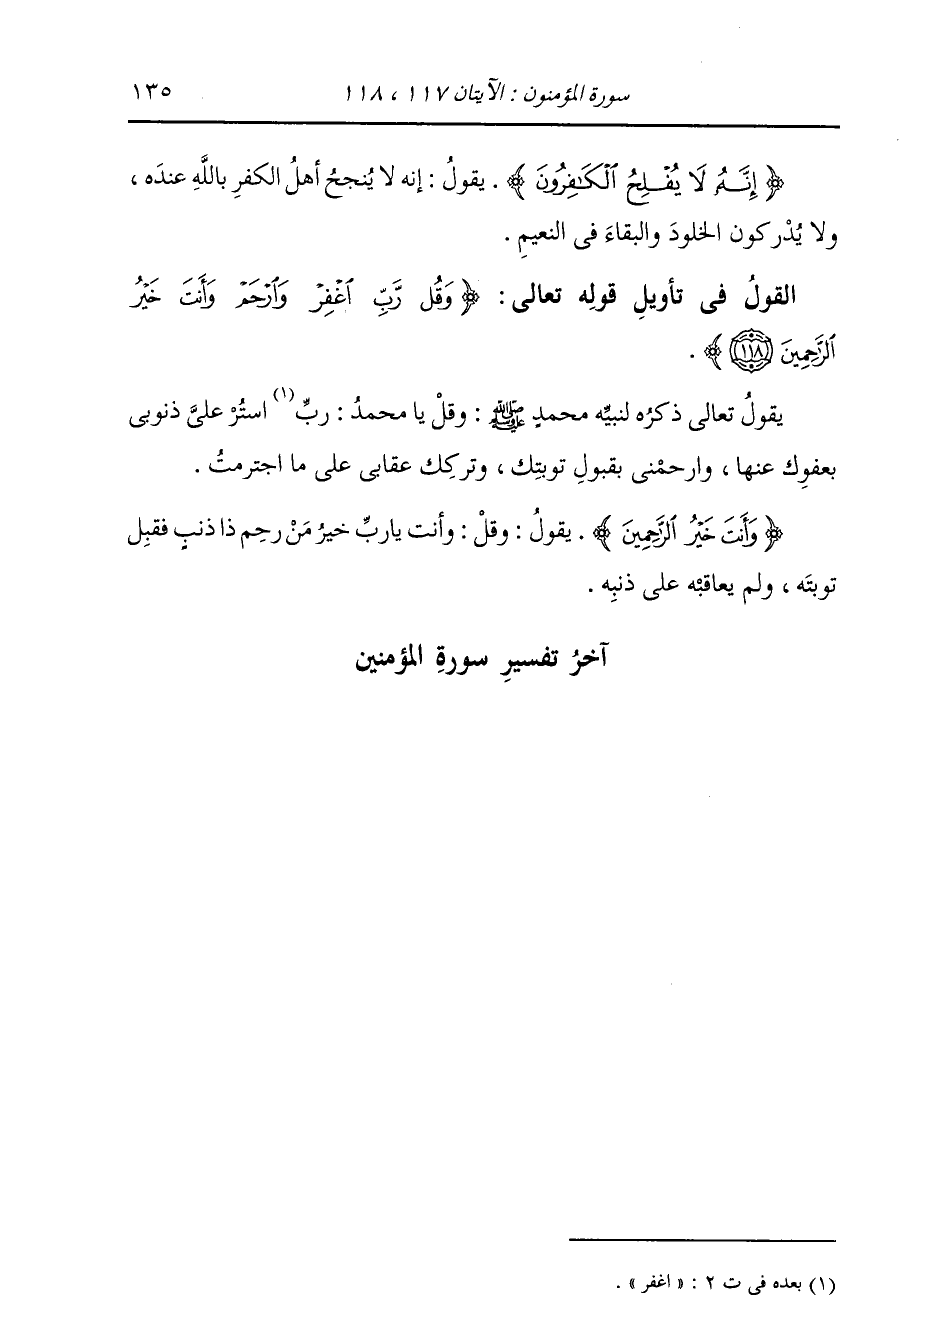 سورة المؤمنون : الآيتان ١١٧ ، ١١٨ ١٣٥
﴿ إِنَّهُ لَا يُفْلِحُ ٱلْكَٰفِرُونَ ﴾ . يقولُ : إنه لا يُنجحُ أهلُ الكفرِ باللَّهِ عندَه ،
ولا يُدْركون الخلودَ والبقاءَ فى النعيمِ .
القولُ فى تأويلِ قولِه تعالى : ﴿ وَقُل رَّبِّ ٱغْفِرْ وَٱرْحَمْ وَأَنتَ خَيْرُ
ٱلرَّٰحِمِينَ ١١٨ ﴾ .
يقولُ تعالى ذكرُه لنبيِّه محمدٍ ﷺ : وقلْ يا محمدُ : ربِّ(١) استُرْ علىَّ ذنوبى
بعفوِك عنها ، وارحمْنى بقبولِ توبتِك ، وتركِك عقابى على ما اجترمتُ .
﴿ وَأَنتَ خَيْرُ ٱلرَّٰحِمِينَ ﴾ . يقولُ : وقلْ : وأنت ياربِّ خيرُ مَنْ رحِم ذا ذنبٍ فقبِل
توبتَه ، ولم يعاقبْه على ذنبِه .
آخرُ تفسيرِ سورةِ المؤمنين
(١) بعده فى ت ٢ : « اغفر » .